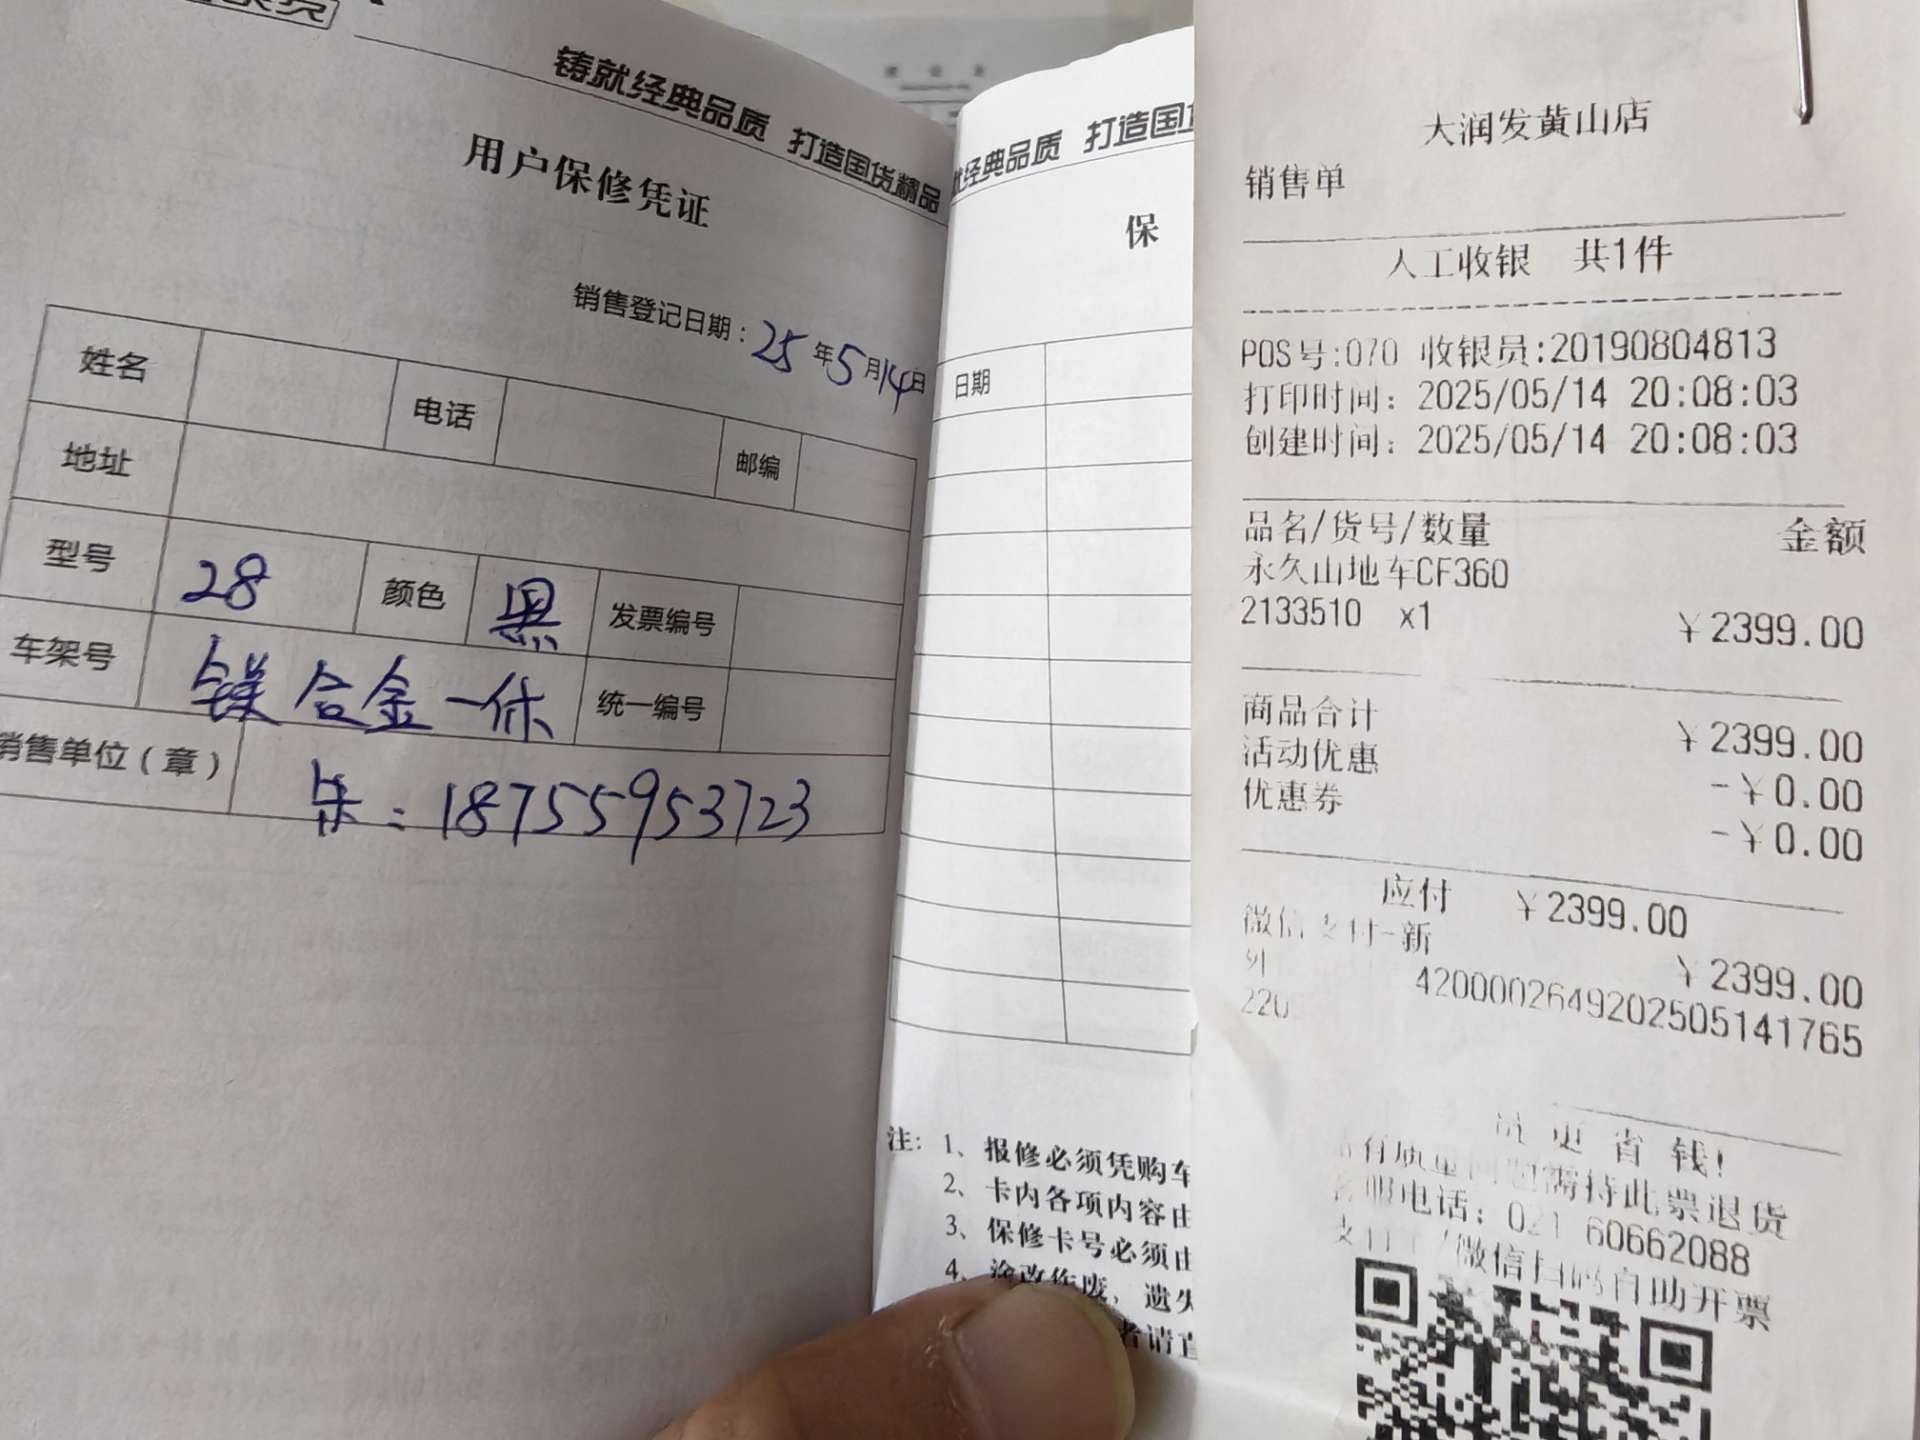 铸就经典品质 打造国货精品
用户保修凭证
销售登记日期：25年5月14日
姓名 电话 邮编
地址
型号 28 颜色 黑 发票编号
车架号 镁合金一体 统一编号
销售单位（章） 朱：18755953723
就经典品质 打造国
保
日期
注：1、报修必须凭购车
2、卡内各项内容由
3、保修卡号必须由
4、涂改作废，遗失
者请直
大润发黄山店
销售单
人工收银 共1件
POS号:070 收银员:20190804813
打印时间：2025/05/14 20:08:03
创建时间：2025/05/14 20:08:03
品名/货号/数量 金额
永久山地车CF360
2133510 x1 ￥2399.00
商品合计 ￥2399.00
活动优惠 -￥0.00
优惠券 -￥0.00
应付 ￥2399.00
微信支付-新 ￥2399.00
4200002649202505141765
220
更省钱!
有质量问题需持此票退货
客服电话：021 60662088
/微信扫码自助开票